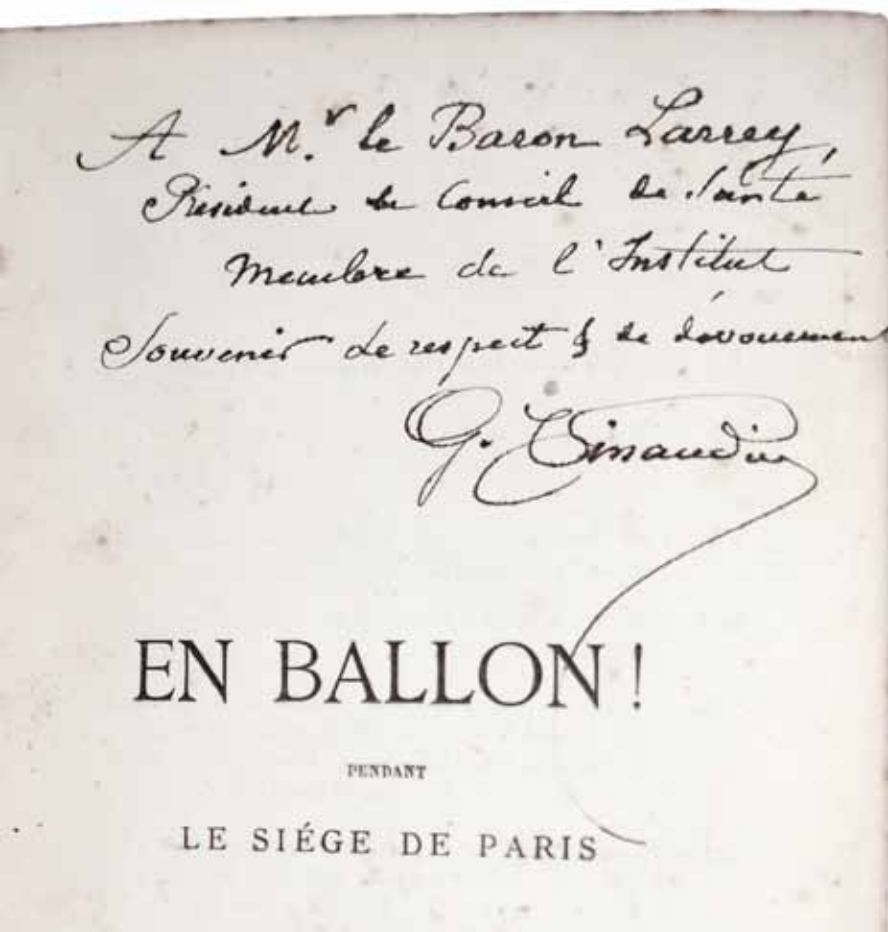 A M.r le Baron Larrey,
Président du Conseil de Santé
Membre de l'Institut
Souvenir de respect & de dévouement
G. Tissandier
EN BALLON !
PENDANT
LE SIÉGE DE PARIS